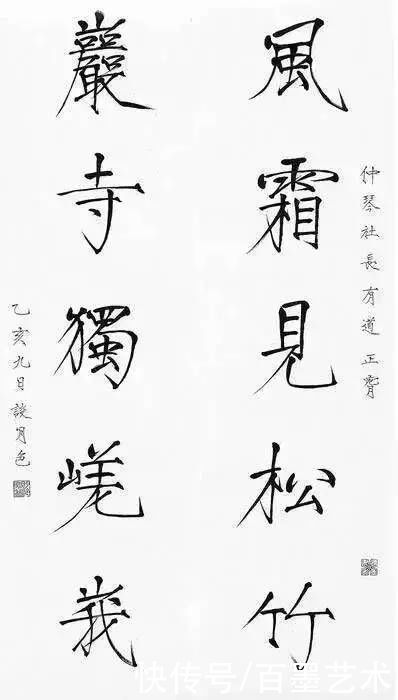 仲琴社長有道正腕
風霜見松竹
巖寺獨嵯峩
乙亥九日談月色
快传号/百墨艺术